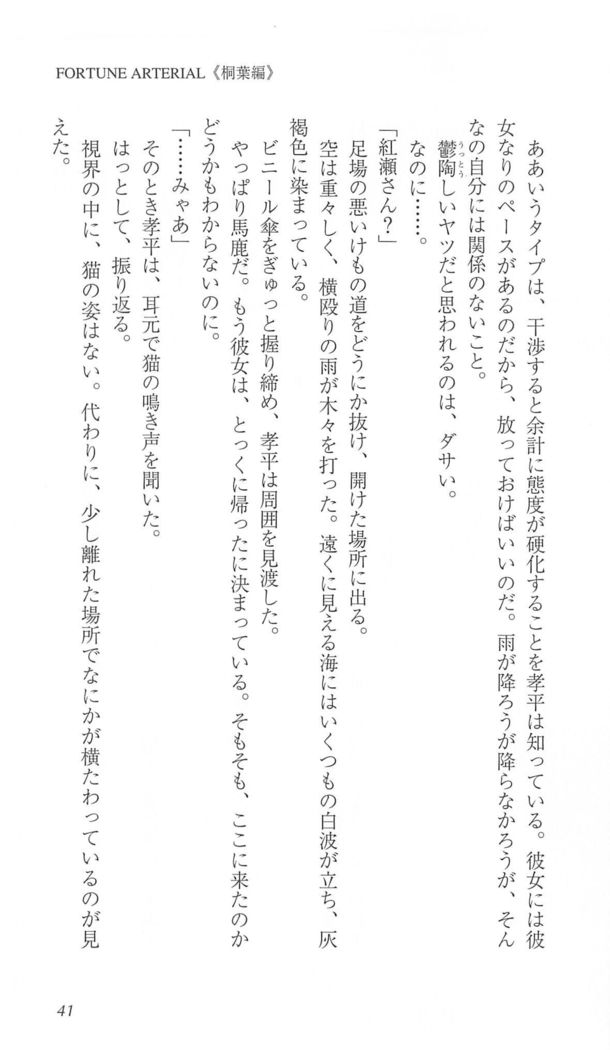 FORTUNE ARTERIAL《桐葉編》
ああいうタイプは、干渉すると余計に態度が硬化することを孝平は知っている。彼女には彼
女なりのペースがあるのだから、放っておけばいいのだ。雨が降ろうが降らなかろうが、そん
なの自分には関係のないこと。
鬱陶しいヤツだと思われるのは、ダサい。
うっとう
なのに……。
「紅瀬さん？」
足場の悪いけもの道をどうにか抜け、開けた場所に出る。
空は重々しく、横殴りの雨が木々を打った。遠くに見える海にはいくつもの白波が立ち、灰
褐色に染まっている。
ビニール傘をぎゅっと握り締め、孝平は周囲を見渡した。
やっぱり馬鹿だ。もう彼女は、とっくに帰ったに決まっている。そもそも、ここに来たのか
どうかもわからないのに。
「……みゃあ」
そのとき孝平は、耳元で猫の鳴き声を聞いた。
はっとして、振り返る。
視界の中に、猫の姿はない。代わりに、少し離れた場所でなにかが横たわっているのが見
えた。
41